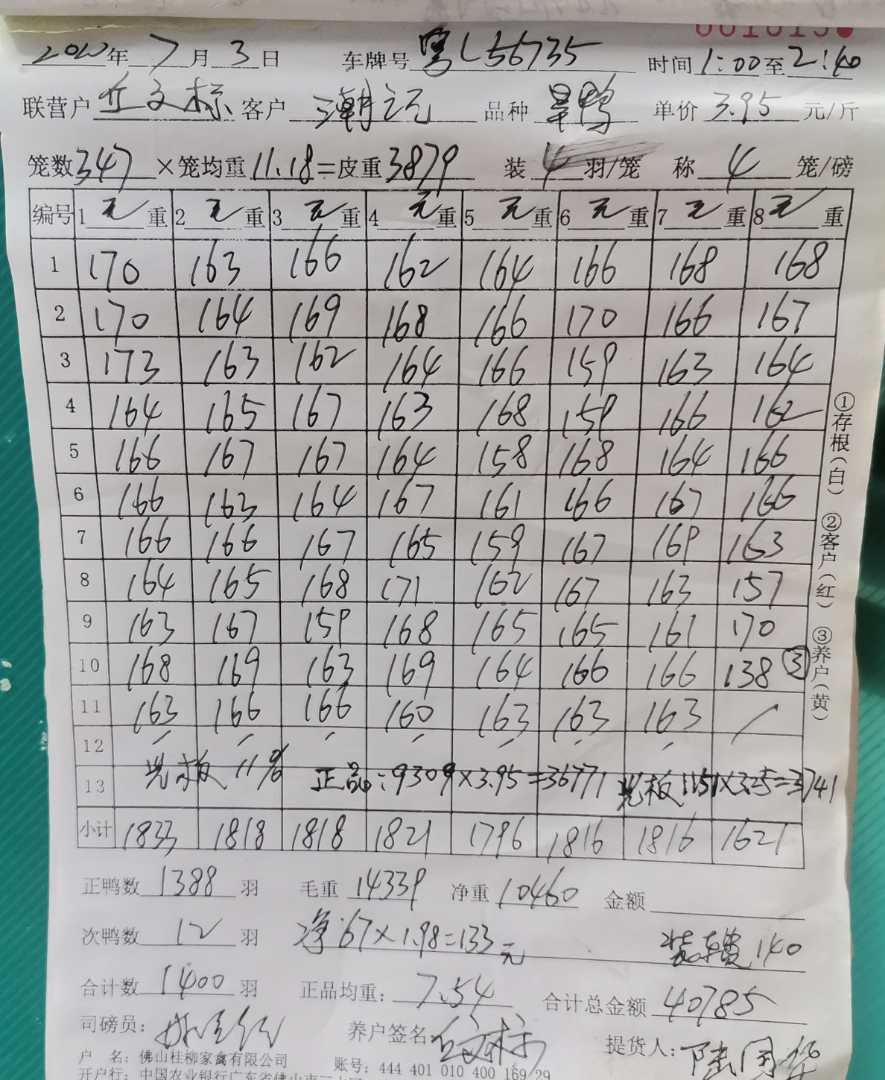 2020年7月3日 车牌号 粤L56735 时间1:00至2:40
联营户 丘文标 客户 潮记 品种 旱鸭 单价 3.95 元/斤
笼数347×笼均重11.18=皮重3879 装 4 羽/笼 称 4 笼/磅
编号 1 毛重 2 毛重 3 毛重 4 毛重 5 毛重 6 毛重 7 毛重 8 毛重
1 170 163 166 162 164 166 168 168
2 170 164 169 168 166 170 166 167
3 173 163 162 164 166 159 163 164
4 164 165 167 163 168 159 166 162
5 166 167 167 164 158 168 164 166
6 166 163 164 167 161 166 167 166
7 166 166 167 165 159 167 169 163
8 164 165 168 171 162 167 163 157
9 163 167 159 168 165 165 161 170
10 168 169 163 169 164 166 166 138 ③
11 163 166 166 160 163 163 163 /
12
13 光板11% 正品:9309×3.95=36771 光板1151×3.25=3741
小计 1833 1818 1818 1821 1796 1816 1816 1621
正鸭数 1388 羽 毛重 14339 净重 10460 金额
次鸭数 12 羽 净:67×1.98=133元 装车费140
合计数 1400 羽 正品均重: 7.54 合计总金额 40785
司磅员: 养户签名 丘文标 提货人:
户 名:佛山桂柳家禽有限公司 账号:444 401 010 400 169 29
开户行:中国农业银行广东省佛山市三
①存根(白) ②客户(红) ③养户(黄)